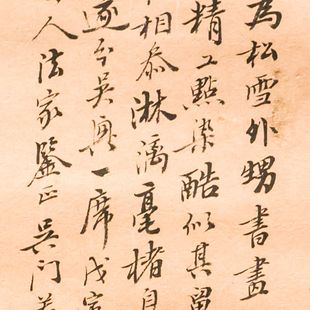 為松雪外甥書畫
精工點染酷似其畱
相叅淋漓毫楮自
逐令吳興一席戊寅
人法家鑒正吳门